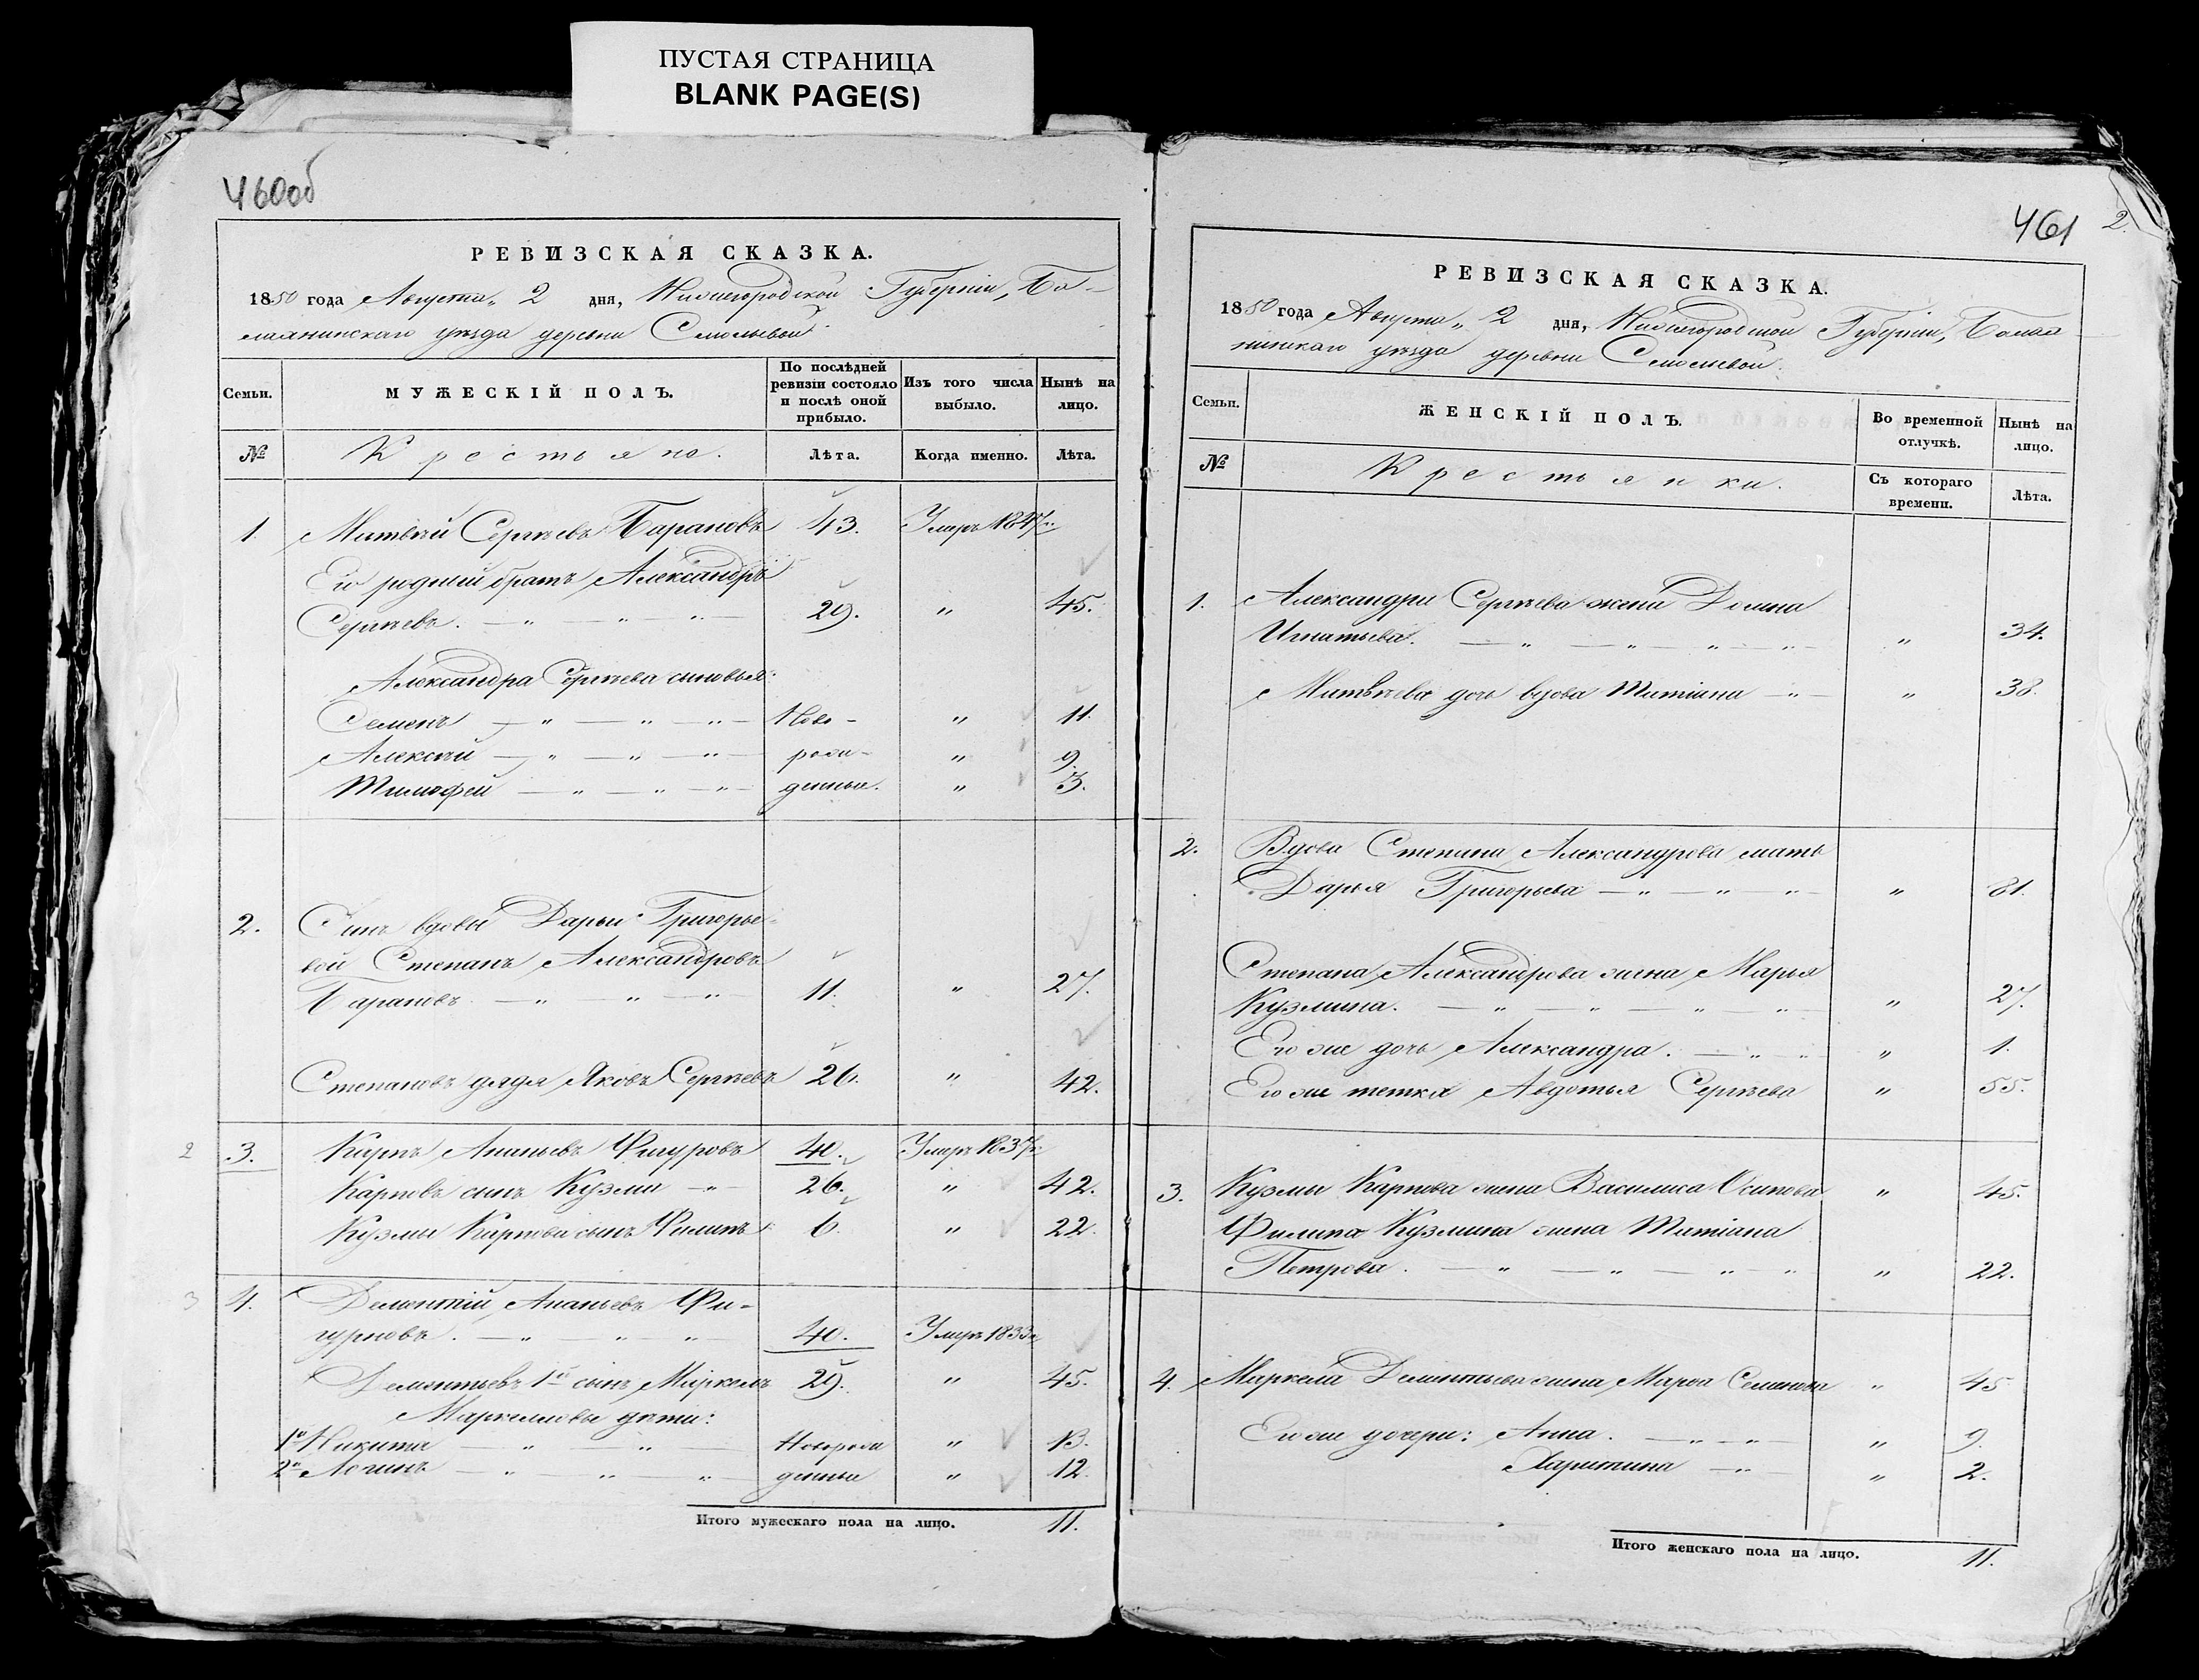 ПУСТАЯ СТРАНИЦА
BLANK PAGE(S)
460об
РЕВИЗСКАЯ СКАЗКА.
1850 года Августа „ 2 дня, Нижегородской Губерніи, Ба-
лахнинскаго уѣзда деревни
Семьи. МУЖЕСКІЙ ПОЛЪ. По послѣдней ревизіи состояло и послѣ оной прибыло. Изъ того числа выбыло. Нынѣ на лицо.
№ Крестьяне. Лѣта. Когда именно. Лѣта.
1. Матвѣй Сергѣевъ Барановъ 43. Умеръ 1847г.
Его родный братъ Александръ
Сергѣевъ. — „ — „ — „ — 29. „ 45.
Александра Сергѣева сыновья:
Семенъ — „ — „ — „ — Ново- „ 11.
Алексѣй — „ — „ — „ — рож- „ 9.
Тимофей — „ — „ — „ — денные. „ 3.
2. Сынъ вдовы Дарьи Григорье-
вой Степанъ Александровъ
Барановъ — „ — „ — „ 11. „ 27.
Степановъ дядя Яковъ Сергѣевъ 26. „ 42.
2 3. Карпъ Ананьевъ Фигуровъ 40. Умеръ 1837г.
Карповъ сынъ Кузма — „ — 26. „ 42.
Кузмы Карпова сынъ Филипъ 6. „ 22.
3 4. Дементій Ананьевъ Фи-
гуровъ. — „ — „ — „ 40. Умеръ 1833г.
Дементьевъ 1й сынъ Маркелъ 29. „ 45.
Маркеловы дѣти:
1й Никита — „ — „ Новорож „ 13.
2й Логинъ — „ — „ — „ денные „ 12.
Итого мужескаго пола на лицо. 11.
461 2.
РЕВИЗСКАЯ СКАЗКА.
1850 года Августа „ 2 дня, Нижегородской Губерніи, Балах
нинскаго уѣзда деревни
Семьи. ЖЕНСКІЙ ПОЛЪ. Во временной отлучкѣ. Нынѣ на лицо.
№ Крестьянки. Съ котораго времени. Лѣта.
1. Александра Сергѣева жена Домна
Игнатьева. — „ — „ — „ — „ — „ 34.
Матвѣева дочь вдова Татіана — „ — „ 38.
2. Вдова Степана Александрова мать
Дарья Григорьева — „ — „ — „ „ 81.
Степана Александрова жена Марья
Кузмина. — „ — „ — „ — „ — „ 27.
Его же дочь Александра. — „ — „ „ 1.
Его же тетка Авдотья Сергѣева „ 55.
3. Кузмы Карпова жена Василиса Осипова „ 45.
Филипа Кузмина жена Татіана
Петрова. — „ — „ — „ — „ „ 22.
4. Маркела Дементьева жена Марфа Семенова „ 45
Его же дочери: Анна. — „ — „ „ 9.
Харитина — „ „ 2.
Итого женскаго пола на лицо. 11.